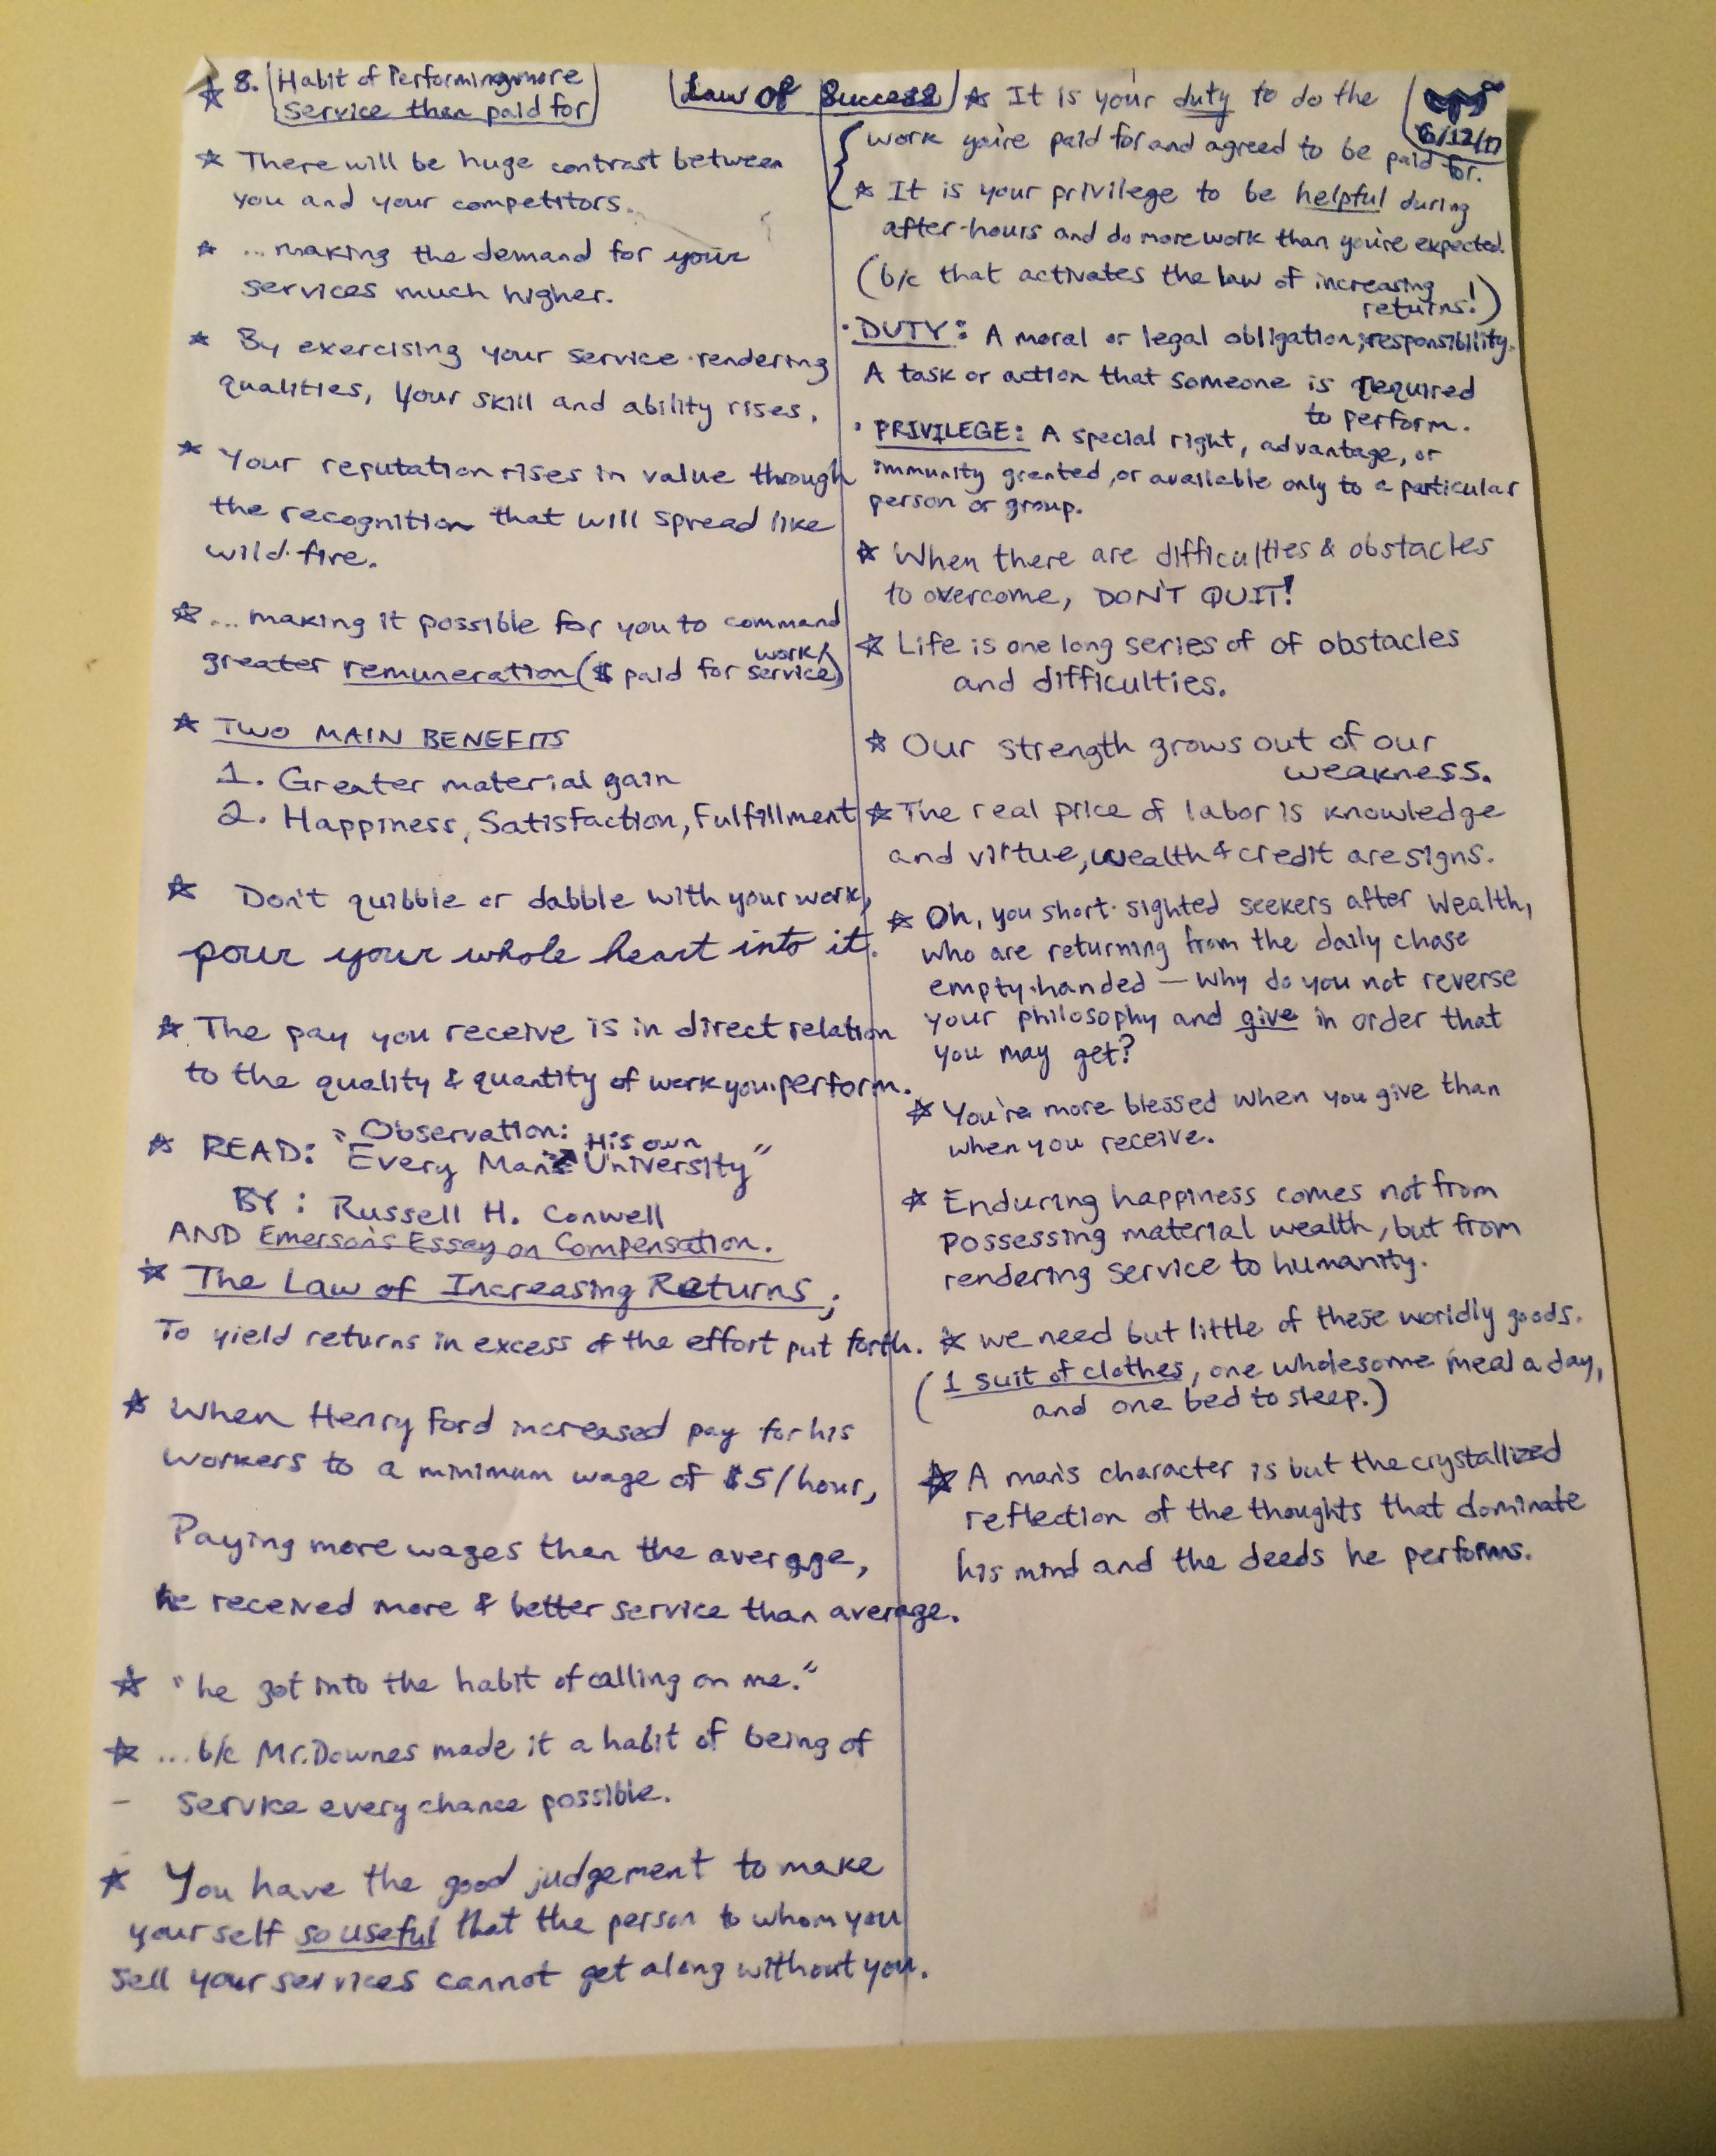 8. Habit of Performing more
Service than paid for
Law of Success
6/12/17
☆ There will be huge contrast between
you and your competitors.
☆ ...making the demand for your
services much higher.
☆ By exercising your service-rendering
qualities, your skill and ability rises.
☆ Your reputation rises in value through
the recognition that will spread like
wild-fire.
☆ ... making it possible for you to command
greater remuneration ($ paid for work/service)
☆ TWO MAIN BENEFITS
1. Greater material gain
2. Happiness, Satisfaction, Fulfillment
☆ Don't quibble or dabble with your work,
pour your whole heart into it.
☆ The pay you receive is in direct relation
to the quality & quantity of work you perform.
☆ READ: "Observation:
Every Man His own University"
BY: Russell H. Conwell
AND Emerson's Essay on Compensation.
☆ The Law of Increasing Returns;
To yield returns in excess of the effort put forth.
☆ When Henry Ford increased pay for his
workers to a minimum wage of $5/hour,
Paying more wages than the average,
he received more & better service than average.
☆ "he got into the habit of calling on me."
☆ ...b/c Mr. Downes made it a habit of being of
- service every chance possible.
☆ You have the good judgement to make
yourself so useful that the person to whom you
sell your services cannot get along without you.
☆ It is your duty to do the
work you're paid for and agreed to be paid for.
☆ It is your privilege to be helpful during
after-hours and do more work than you're expected.
(b/c that activates the law of increasing
returns!)
· DUTY: A moral or legal obligation; responsibility.
A task or action that someone is required
to perform.
· PRIVILEGE: A special right, advantage, or
immunity granted, or available only to a particular
person or group.
☆ When there are difficulties & obstacles
to overcome, DON'T QUIT!
☆ Life is one long series of of obstacles
and difficulties.
☆ Our strength grows out of our
weakness.
☆ The real price of labor is knowledge
and virtue, wealth & credit are signs.
☆ Oh, you short-sighted seekers after wealth,
who are returning from the daily chase
empty-handed — Why do you not reverse
your philosophy and give in order that
you may get?
☆ You're more blessed when you give than
when you receive.
☆ Enduring happiness comes not from
possessing material wealth, but from
rendering service to humanity.
☆ we need but little of these worldly goods.
(1 suit of clothes, one wholesome meal a day,
and one bed to sleep.)
☆ A man's character is but the crystallized
reflection of the thoughts that dominate
his mind and the deeds he performs.